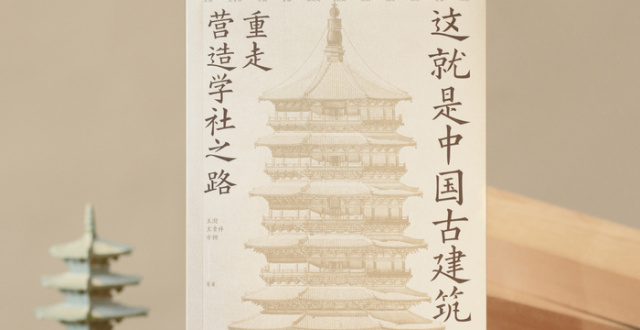 这就是中国古建筑
重走
营造学社之路